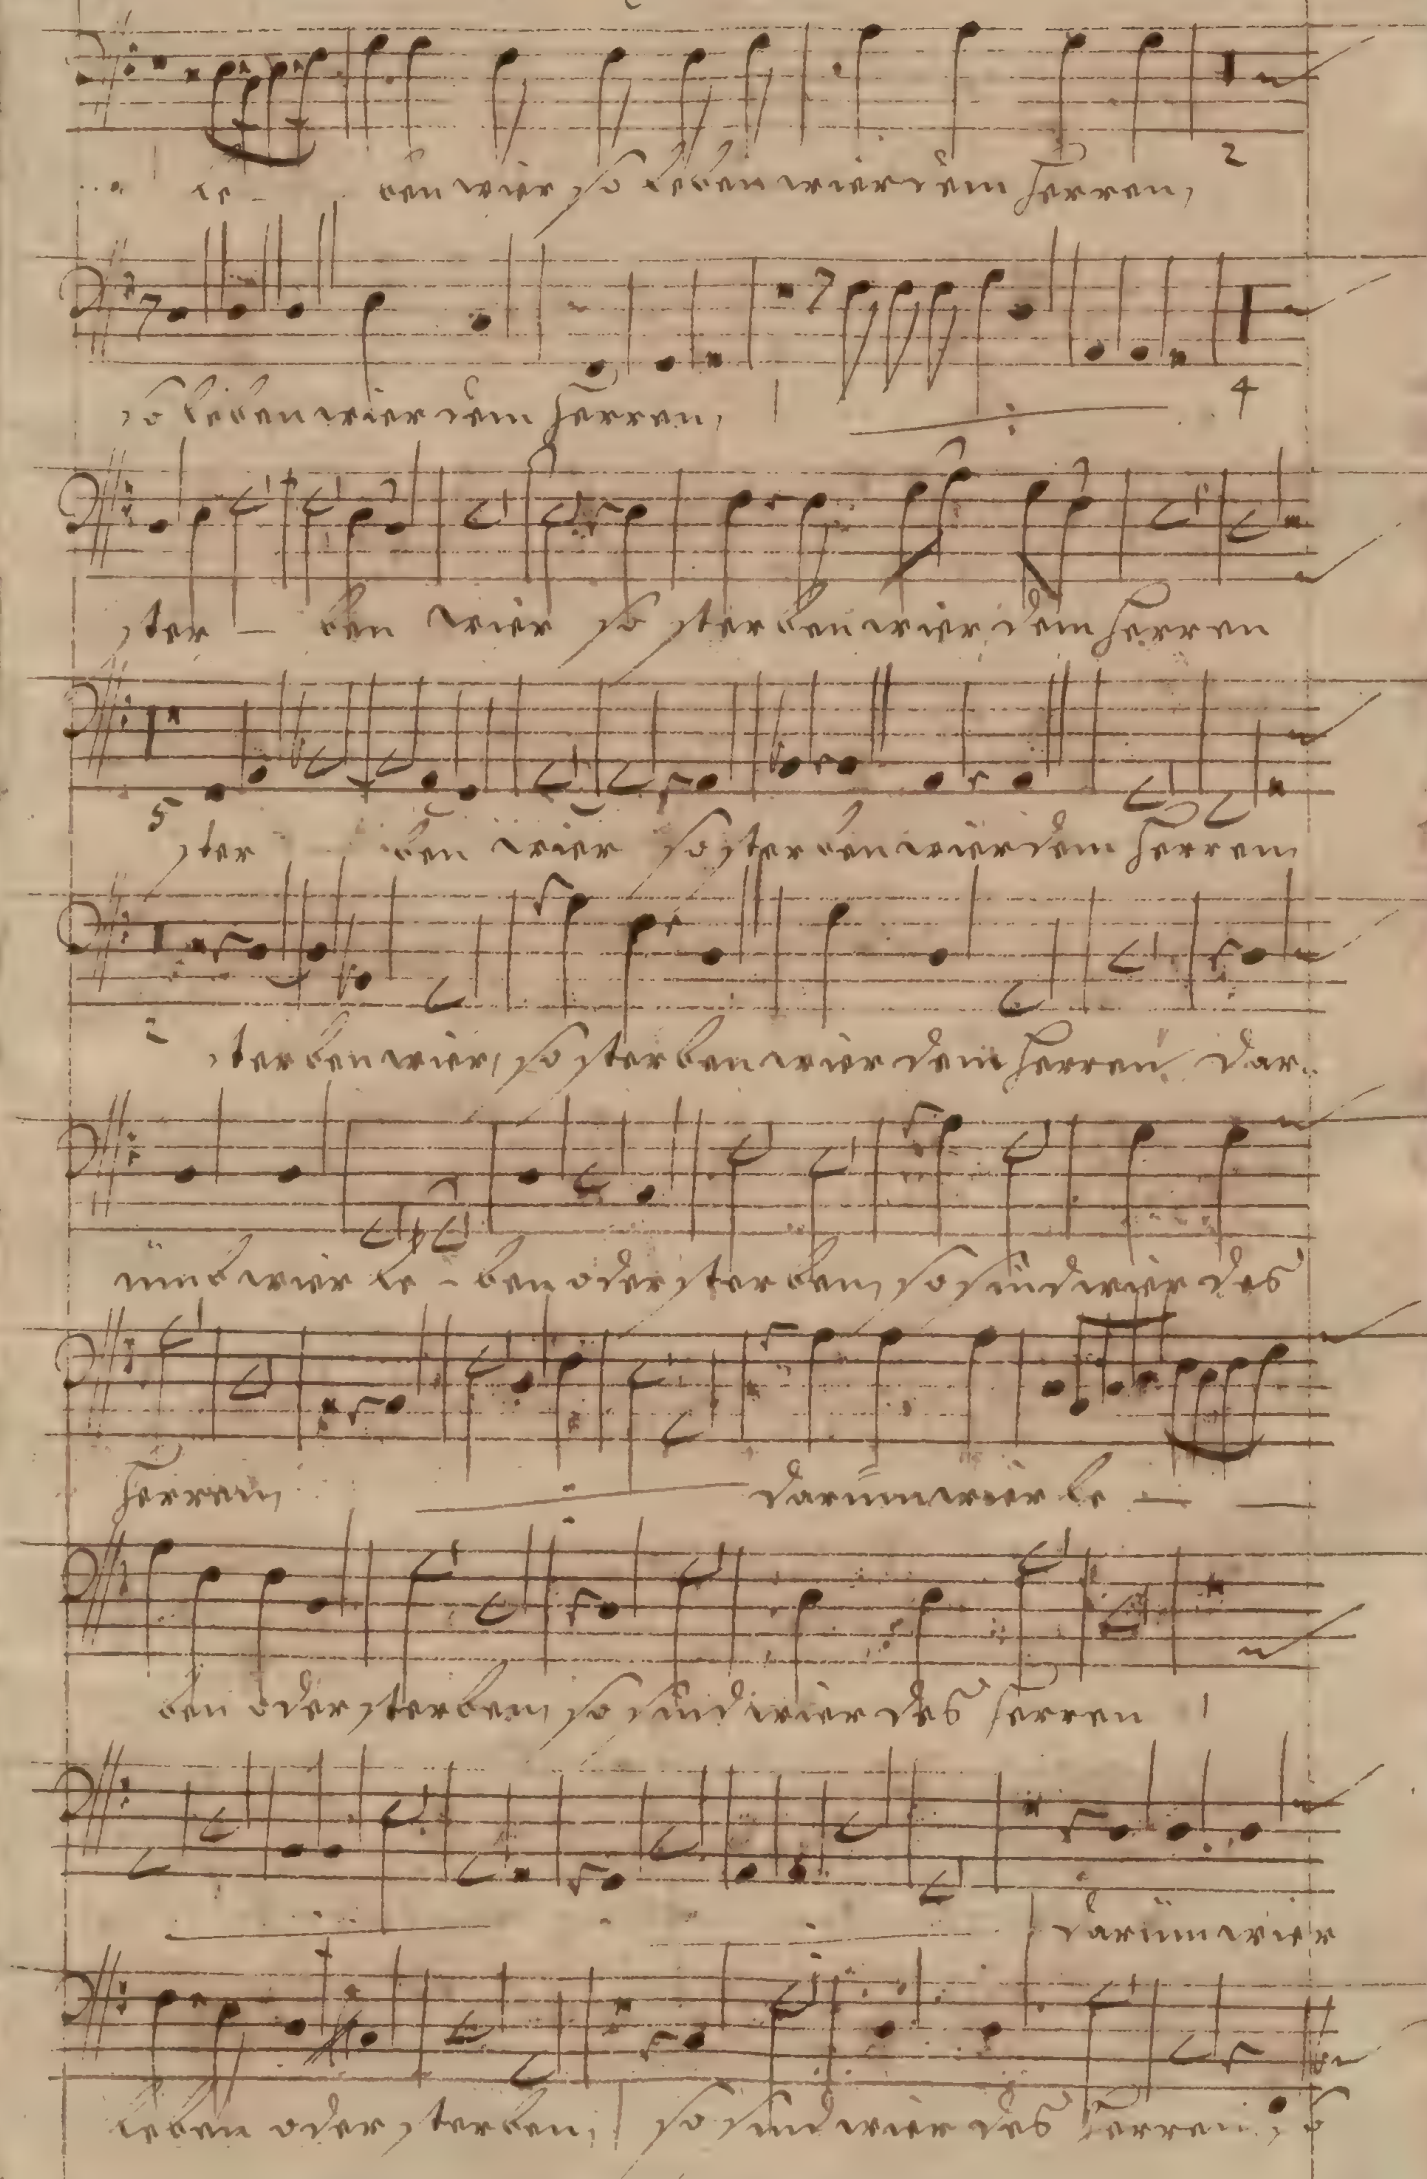 2
le - ben wier so leben wier dem Herren,
so leben wier dem Herren,
4
ster - ben wier so sterben wier dem Herren
5
ster ben wier so sterben wier dem Herren
2
sterben wier, so sterben wier dem Herren, dar-
ümb wier le - ben oder sterben, so sind wier des
Herren, darümm wier le -
ben oder sterben, so sind wier des Herren
darümm wier
leben oder sterben, so sind wier des Herren, so